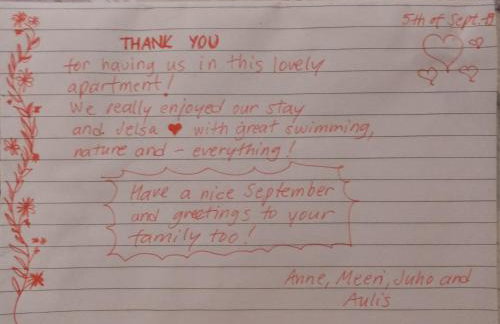 5th of Sept.
THANK YOU
for having us in this lovely
apartment!
We really enjoyed our stay
and Jelsa ♥ with great swimming,
nature and - everything!
Have a nice September
and greetings to your
family too!
Anne, Meeri, Juho and
Aulis